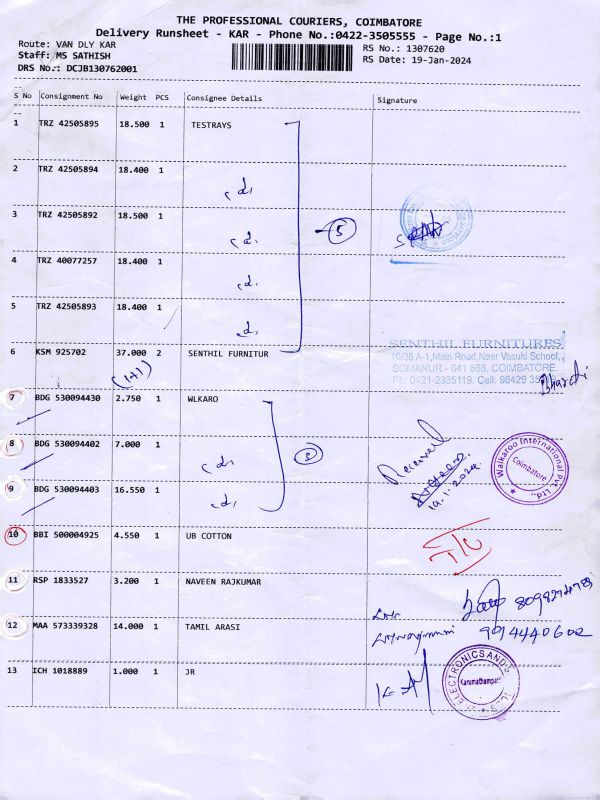 THE PROFESSIONAL COURIERS, COIMBATORE
Delivery Runsheet - KAR - Phone No.:0422-3505555 - Page No.:1
Route: VAN DLY KAR
RS No.: 1307620
Staff: MS SATHISH
RS Date: 19-Jan-2024
DRS No.: DCJB130762001
S No Consignment No Weight PCS Consignee Details Signature
1 TRZ 42505895 18.500 1 TESTRAYS
2 TRZ 42505894 18.400 1
cdı
3 TRZ 42505892 18.500 1
cdı
5
4 TRZ 40077257 18.400 1
cdı
5 TRZ 42505893 18.400 1
cdı
SENTHIL FURNITURES
10/36 A-1, Main Road, Near Vasuki School,
SOMANUR - 641 668. COIMBATORE.
Ph: 0421-2335119. Cell: 98429
6 KSM 925702 37.000 2 SENTHIL FURNITUR
(1+1)
Bharathi
7 BDG 530094430 2.750 1 WLKARO
8 BDG 530094402 7.000 1
cdı
3
Received
19.1.2024
Walkaroo International Pvt. Ltd.,
Coimbatore
9 BDG 530094403 16.550 1
cdı
10 BBI 500004925 4.550 1 UB COTTON
T/C
11 RSP 1833527 3.200 1 NAVEEN RAJKUMAR
12 MAA 573339328 14.000 1 TAMIL ARASI
9014440602
13 ICH 1018889 1.000 1 JR
ELECTRONICS AND
Karumathampatti